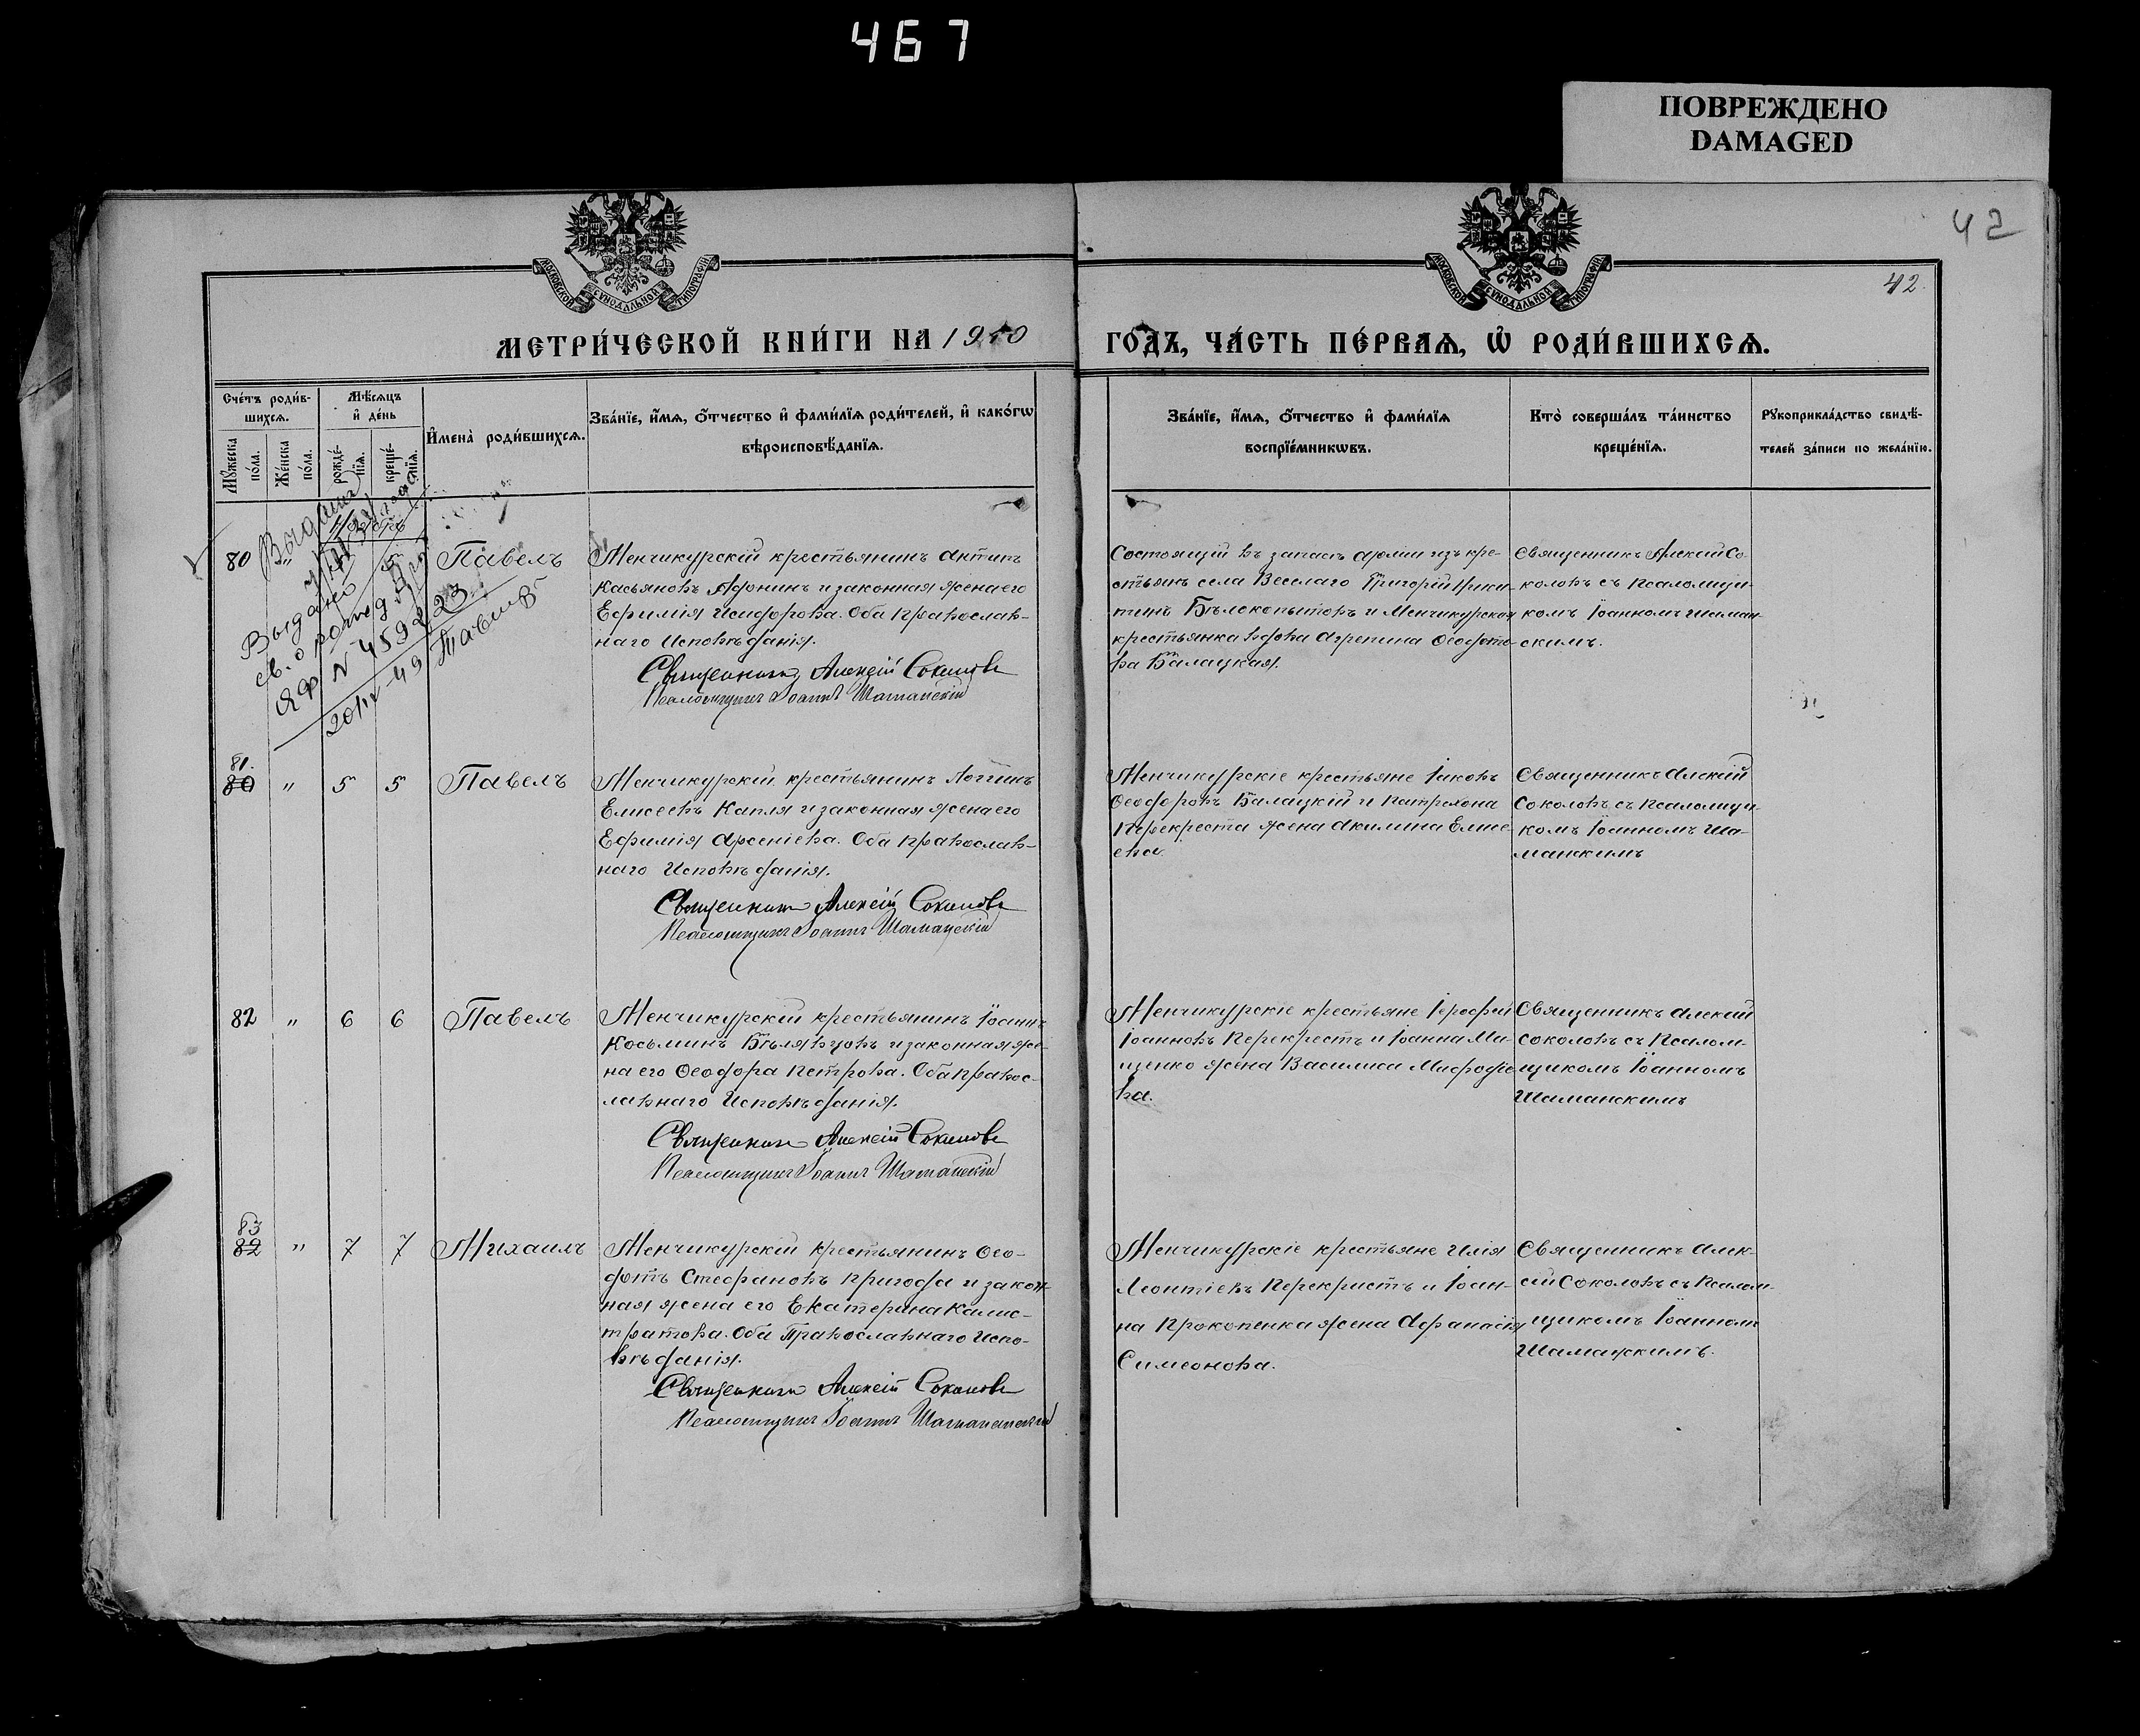 467
ПОВРЕЖДЕНО
DAMAGED
42
42.
МОСКОВСКОЙ СѴНОДАЛЬНОЙ ТИПОГРАФІИ
МОСКОВСКОЙ СѴНОДАЛЬНОЙ ТИПОГРАФІИ
МЕТРИ́ЧЕСКОЙ КНИ́ГИ НА 1910 ГОДЪ, ЧА́СТЬ ПЕ́РВАѦ, Ѡ҆ РОДИ́ВШИХСѦ.
Сче́тъ роди́в-
шихсѧ.
Мꙋ́жеска
по́ла.
Же́нска
по́ла.
Мѣ́сѧцъ
и҆ де́нь
рожде́-
нїѧ.
креще́-
нїѧ.
И҆мена̀ роди́вшихсѧ.
Зва́нїе, и҆́мѧ, ѻ҆́тчество и҆ фами́лїѧ роди́телей, и҆ како́гѡ
вѣроисповѣ́данїѧ.
Зва́нїе, и҆́мѧ, ѻ҆́тчество и҆ фами́лїѧ
воспрїе́мникѡвъ.
Кто̀ соверша́лъ та́инство
креще́нїѧ.
Рꙋкоприкла́дство свидѣ́-
телей за́писи по жела́нїю.
Выдано
св. о рожд
ЯФ N 459223
20/IV-49
80 " 5 Павелъ
Менчикурскій крестьянинъ Антипъ
Касьяновъ Афонинъ и законная жена его
Ефимія Исидорова. Оба православ-
наго Исповѣданія.
Священникъ Алексій Соколовъ
Псаломщикъ Іоаннъ Шаманскій
Состоящій въ запасѣ арміи изъ кре-
стьянъ села Веселаго Григорій Ники-
тинъ Бѣлокопытовъ и Менчикурская
крестьянка вдова Агрепина Ѳеодото-
ва Балацкая.
Священникъ Алексій Со-
коловъ съ псаломщи-
комъ Іоанномъ Шаман-
скимъ.
81.
80 " 5 5 Павелъ
Менчикурскій крестьянинъ Логгинъ
Елисеевъ Капля и законная жена его
Ефимія Арсеніева. Оба православ-
наго Исповѣданія.
Священникъ Алексій Соколовъ
Псаломщикъ Іоаннъ Шаманскій
Менчикурскіе крестьяне Іаковъ
Ѳеодоровъ Балацкій и Патрехона
Перекреста жена Акилина Елисе-
ева.
Священникъ Алексій
Соколовъ съ псаломщи-
комъ Іоанномъ Ша-
манскимъ
82 " 6 6 Павелъ
Менчикурскій крестьянинъ Іоаннъ
Косьминъ Бѣлявцовъ и законная же-
на его Ѳеодора Петрова. Оба правос-
лавнаго Исповѣданія.
Священникъ Алексій Соколовъ
Псаломщикъ Іоаннъ Шаманскій
Менчикурскіе крестьяне Іерофей
Іоанновъ Перекрестъ и Іоанна Ми-
щенко жена Василиса Мефодіе-
ва.
Священникъ Алексій
Соколовъ съ псалом-
щикомъ Іоанномъ
Шаманскимъ
83
82 " 7 7 Михаилъ
Менчикурскій крестьянинъ Ѳео-
дотъ Стефановъ Пригода и закон-
ная жена его Екатерина Калис-
тратова. Оба Православнаго Испо-
вѣданія.
Священникъ Алексій Соколовъ
Псаломщикъ Іоаннъ Шаманскій
Менчикурскіе крестьяне Илія
Леонтіевъ Перекристъ и Іоан-
на Прокопенка жена Афанасія
Симеонова.
Священникъ Алек-
сій Соколовъ съ псалом-
щикомъ Іоанномъ
Шаманскимъ.